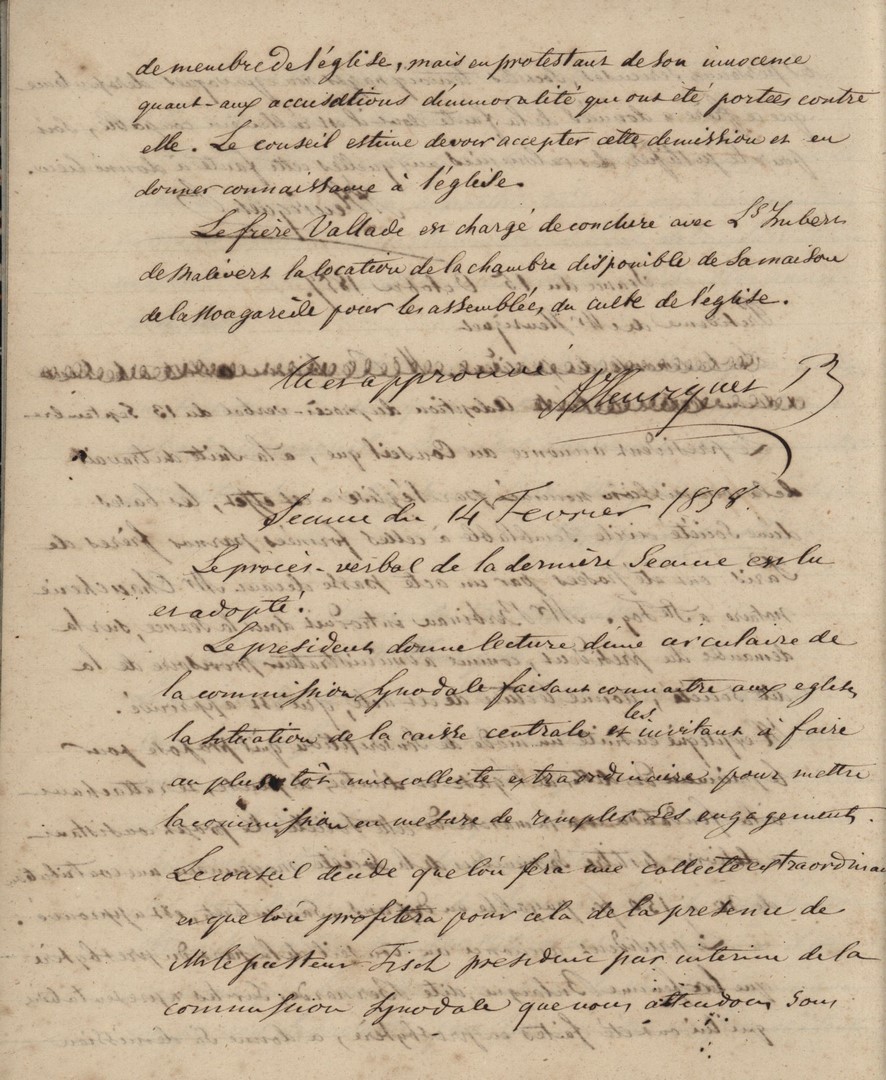 de membre de l'église, mais en protestant de son innocence
quant-aux accusations d'immoralité qui ont été portées contre
elle. Le conseil estime devoir accepter cette demission et en
donner connaissance à l'église.
Le frère Vallade est chargé de conclure avec Ls Imbert
de Malivert la location de la chambre disponible de sa maison
de la pour les assemblées du culte de l'église.
Vu et approuvé
Seance du 14 Fevrier 1858.
Le procès-verbal de la dernière Seance est lu
et adopté.
Le president donne lecture d'une circulaire de
la commission Synodale faisant connaitre aux eglises
la situation de la caisse centrale et les invitant à faire
au plus tôt une collecte extraordinaire pour mettre
la commission en mesure de remplir ses engagements.
Le conseil decide que l'on fera une collecte extraordinai
et que l'on profitera pour cela de la presence de
Mr le pasteur Fisch president par interim de la
commission Synodale que nous attendons sous